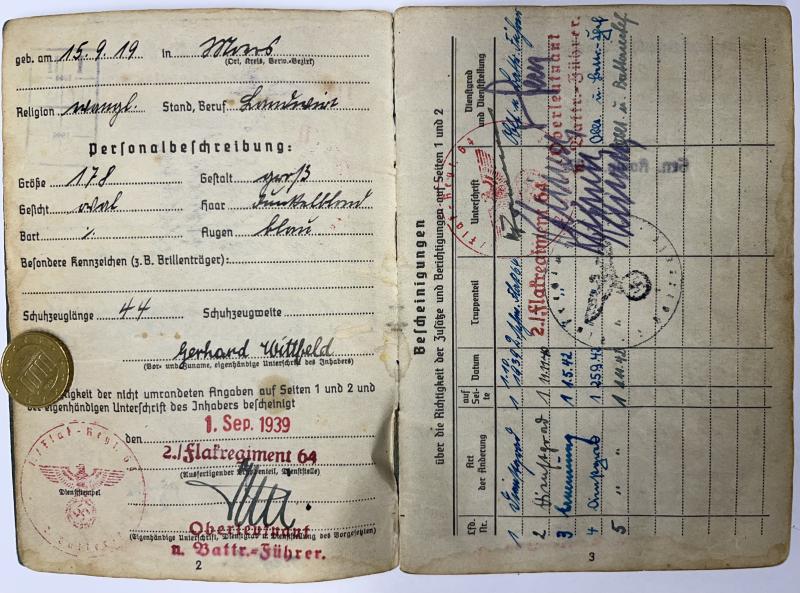 geb. am 15.9.19 in Moers
(Ort, Kreis, Verw.-Bezirk)
Religion evangl. Stand, Beruf Landwirt
Personalbeschreibung:
Größe 178 Gestalt groß
Gesicht oval Haar dunkelblond
Bart ∕. Augen blau
Besondere Kennzeichen (z.B. Brillenträger):
Schuhzeuglänge 44 Schuhzeugweite
Gerhard Wittfeld
(Vor- und Zuname, eigenhändige Unterschrift des Inhabers)
igkeit der nicht umrandeten Angaben auf Seiten 1 und 2 und
der eigenhändigen Unterschrift des Inhabers bescheinigt
den 1. Sep. 1939
2./Flakregiment 64
(Ausfertigender Truppenteil, Dienststelle)
Dienststempel
Oberleutnant
u. Battr.-Führer.
(Eigenhändige Unterschrift, Dienstgrad u. Dienststellung des Vorgesetzten)
2
Bescheinigungen
über die Richtigkeit der Zusätze und Berichtigungen auf Seiten 1 und 2
Lfd. Nr. Art der Änderung auf Seite Datum Truppenteil Unterschrift Dienstgrad und Dienststellung
1 Dienstgrad 1 1.10.1939
2 Dienstgrad 1 2./Flakregiment 64 Oberleutnant u. Battr.-Führer.
3 Ernennung 1 1.5.42
4 Dienstgrad 1 25.9.42
5 " " 1
3